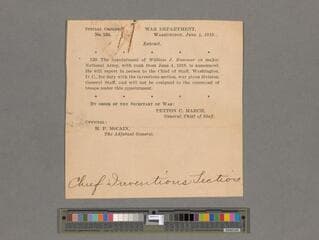 SPECIAL ORDERS,
No. 130.
WAR DEPARTMENT,
WASHINGTON, June 4, 1918.
Extract.
* * * * * * *
120. The appointment of William J. Hammer as major
National Army, with rank from June 4, 1918, is announced.
He will report in person to the Chief of Staff, Washington,
D. C., for duty with the inventions section, war plans division,
General Staff, and will not be assigned to the command of
troops under this appointment.
* * * * * * *
BY ORDER OF THE SECRETARY OF WAR:
PEYTON C. MARCH,
General, Chief of Staff.
OFFICIAL:
H. P. McCAIN,
The Adjutant General.
Chief Inventions Section